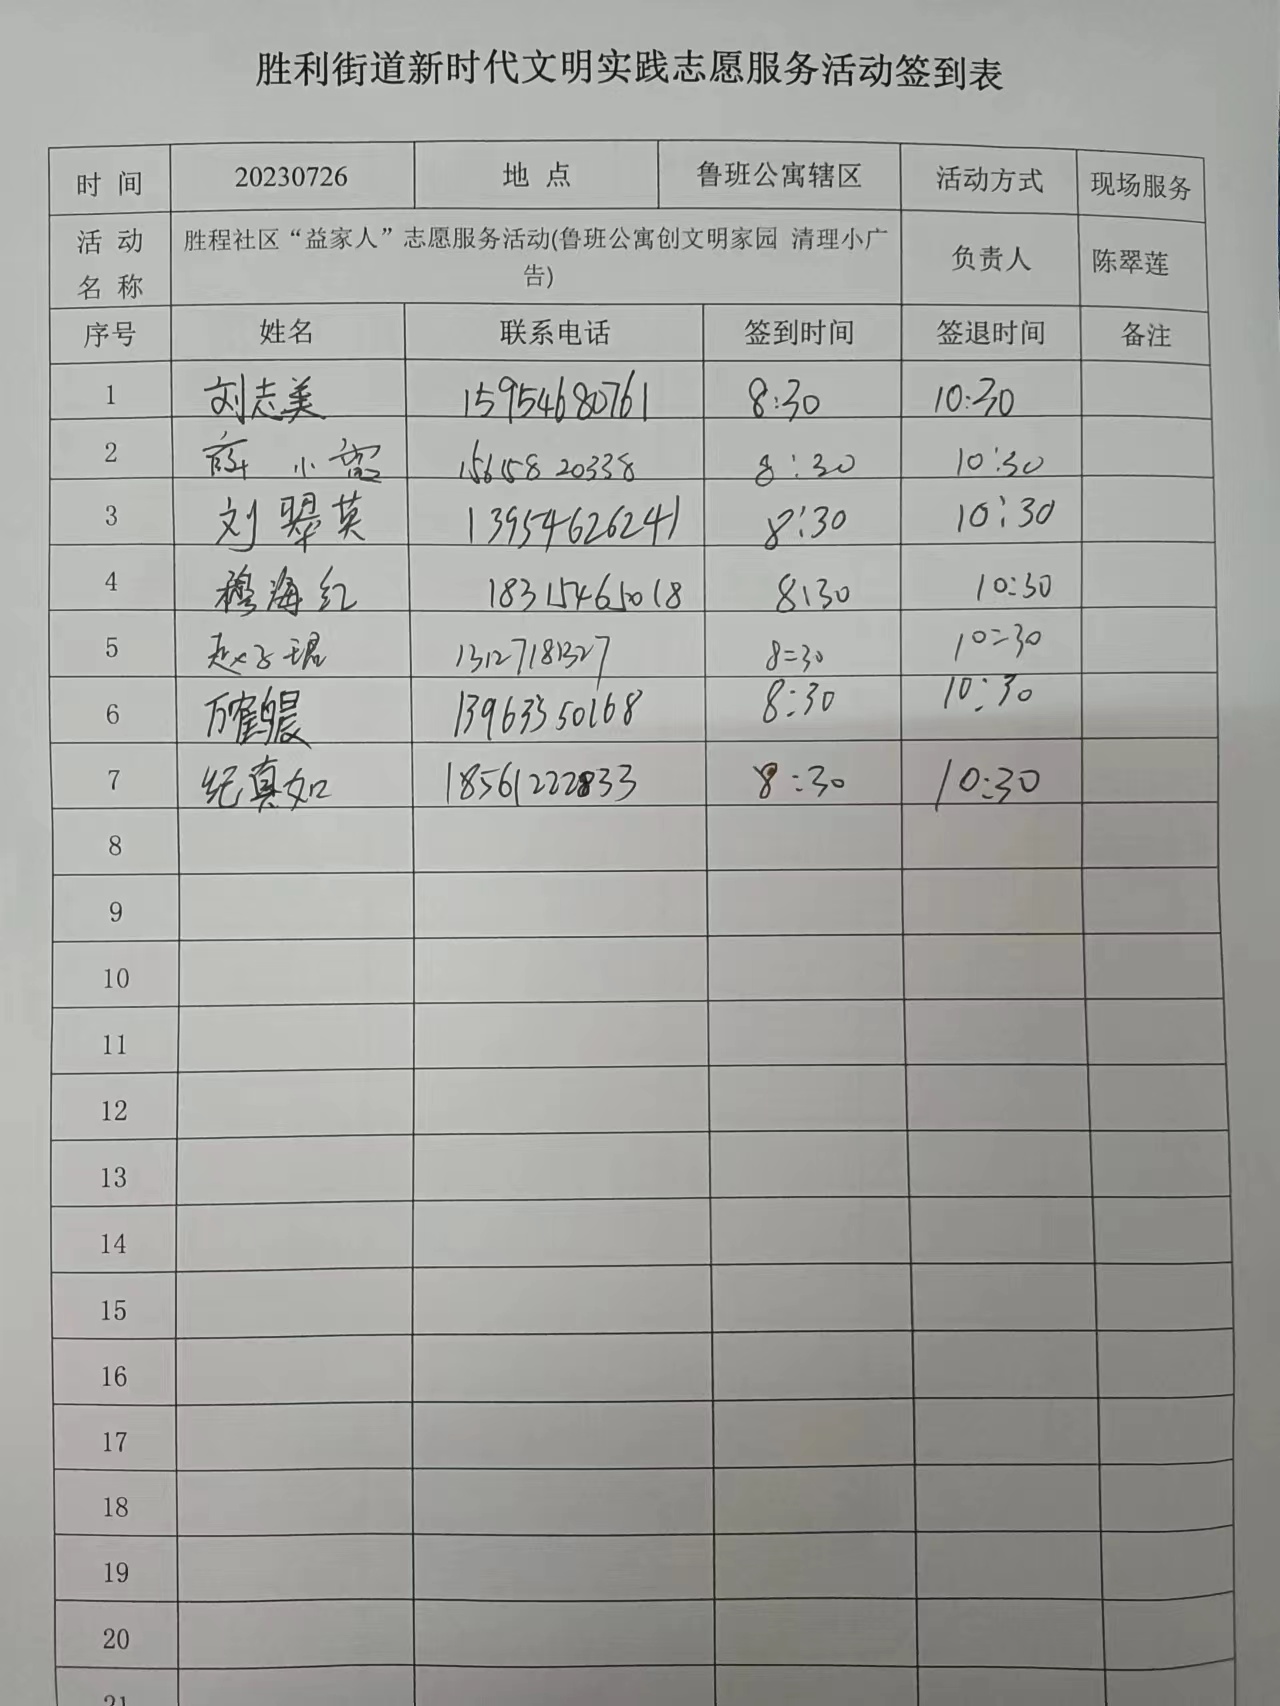 胜利街道新时代文明实践志愿服务活动签到表
时 间 20230726 地 点 鲁班公寓辖区 活动方式 现场服务
活 动 名 称 胜程社区“益家人”志愿服务活动(鲁班公寓创文明家园 清理小广告) 负责人 陈翠莲
序号 姓名 联系电话 签到时间 签退时间 备注
1 刘志美 15954680761 8:30 10:30
2 薛小 15615820338 8:30 10:30
3 刘翠英 13954626241 8:30 10:30
4 穆海红 18315465018 8:30 10:30
5 赵子琨 13127181327 8:30 10:30
6 万鹤晨 13963350168 8:30 10:30
7 纪真如 18561222833 8:30 10:30
8
9
10
11
12
13
14
15
16
17
18
19
20
21